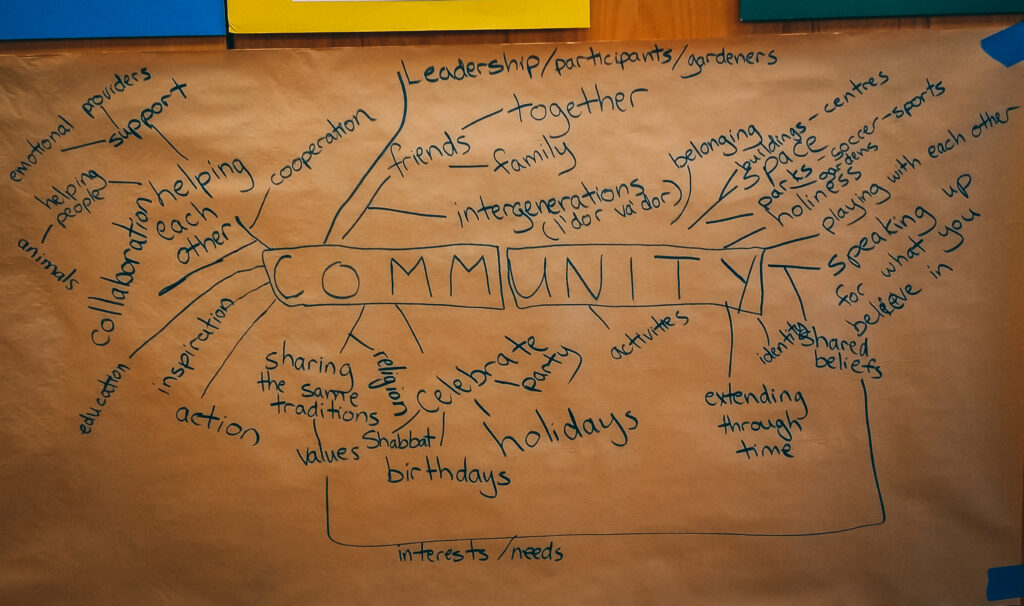 Leadership/participants/gardeners
together
friends
family
intergenerations
(l'dor va'dor)
cooperation
emotional
providers
support
helping
each
other
helping
people
animals
collaboration
belonging
buildings-centres
space
parks-soccer-sports
gardens
holiness
playing with each other
speaking up
for what you
believe in
COMMUNITY
education
inspiration
action
sharing
the same
traditions
religion
values
celebrate
party
Shabbat
birthdays
holidays
activities
identity
shared
beliefs
extending
through
time
interests/needs